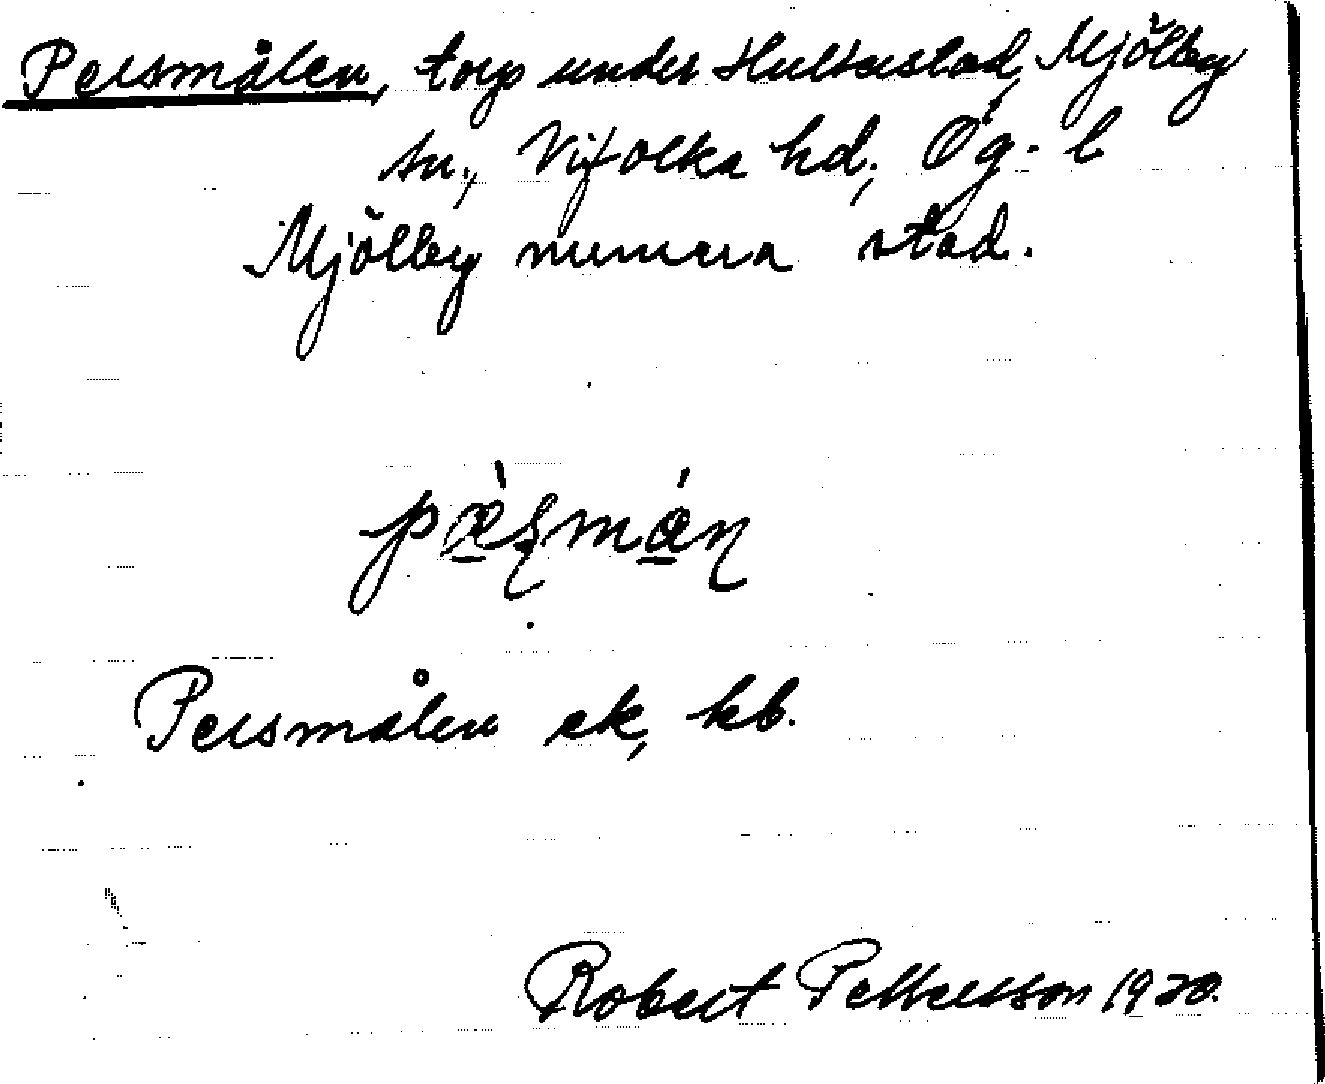 Persmålen, torp under Hulterstad, Mjölby
sn., Vifolka hd, Ög. l
Mjölby numera stad.
Persmålen ek, kb.
Robert Pettersson 1920.